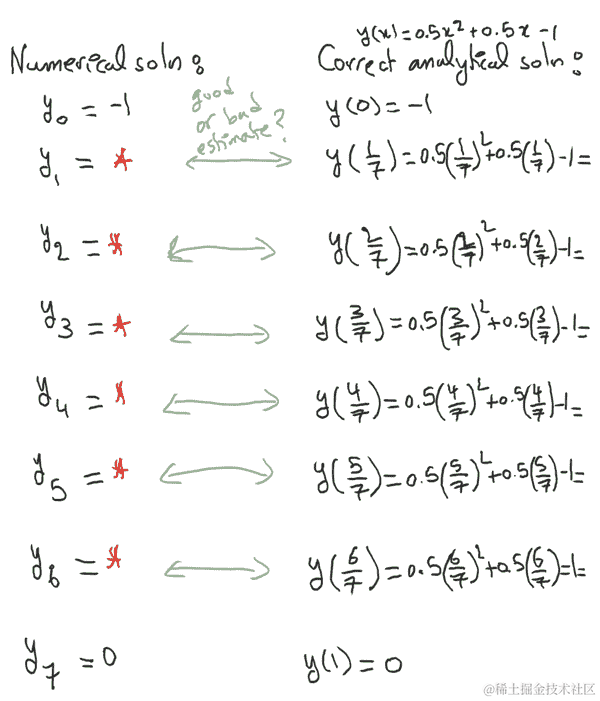 y(x)=0.5x²+0.5x-1
Numerical soln: Correct analytical soln:
y₀ = -1 good or bad estimate? y(0)=-1
y₁ = * y(1/7)=0.5(1/7)²+0.5(1/7)-1=
y₂ = * y(2/7)=0.5(2/7)²+0.5(2/7)-1=
y₃ = * y(3/7)=0.5(3/7)²+0.5(3/7)-1=
y₄ = * y(4/7)=0.5(4/7)²+0.5(4/7)-1=
y₅ = * y(5/7)=0.5(5/7)²+0.5(5/7)-1=
y₆ = * y(6/7)=0.5(6/7)²+0.5(6/7)-1=
y₇ = 0 y(1)=0
@稀土掘金技术社区